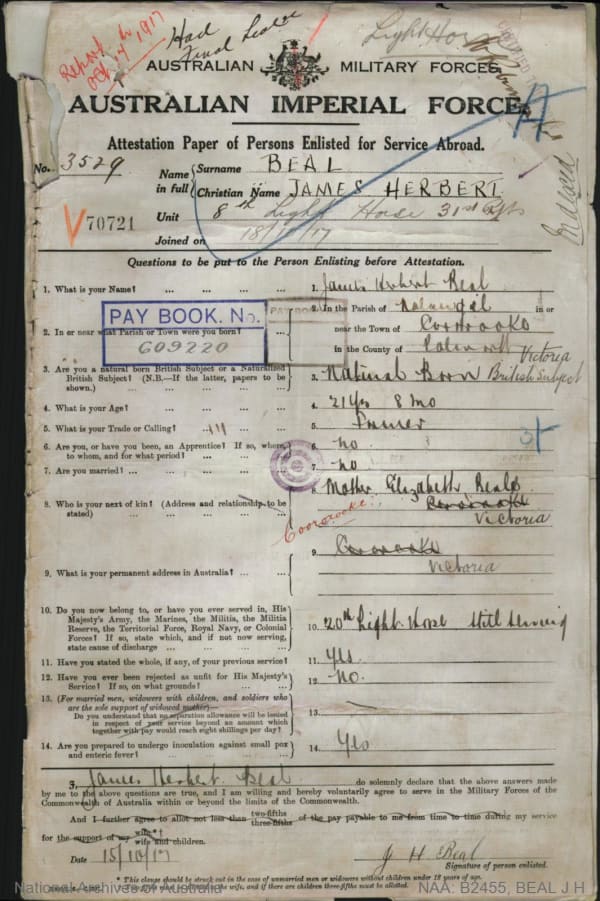 Report
Oct 14 1917
Had
Final Leave
Light Horse
AUSTRALIAN MILITARY FORCES.
AUSTRALIAN IMPERIAL FORCE.
Attestation Paper of Persons Enlisted for Service Abroad.
No. 3529
Name in full
Surname BEAL
Christian Name JAMES HERBERT
Unit 8th Light Horse 31st Rfts
V 70721
Joined on
Questions to be put to the Person Enlisting before Attestation.
1. What is your Name? ... ... ... ... 1. James Herbert Beal
PAY BOOK. No.
609220
2. In or near what Parish or Town were you born? 2. In the Parish of in or
near the Town of Coorooke
in the County of Victoria
3. Are you a natural born British Subject or a Naturalized
British Subject? (N.B.—If the latter, papers to be
shown.) ... 3. Natural Born British Subject
4. What is your Age? ... 4. 21 yrs 8 mo
5. What is your Trade or Calling? ... 5. Farmer
6. Are you, or have you been, an Apprentice? If so, where,
to whom, and for what period? ... 6. no
7. Are you married? ... 7. no
8. Who is your next of kin? (Address and relationship to be
stated) ... 8. Mother Elizabeth Beal
Victoria
Coorooke
9. What is your permanent address in Australia? ... 9.
Victoria
10. Do you now belong to, or have you ever served in, His
Majesty's Army, the Marines, the Militia, the Militia
Reserve, the Territorial Force, Royal Navy, or Colonial
Forces? If so, state which, and if not now serving,
state cause of discharge ... 10. 20th Light Horse Still Serving
11. Have you stated the whole, if any, of your previous service? 11. Yes
12. Have you ever been rejected as unfit for His Majesty's
Service? If so, on what grounds? 12. No.
13. (For married men, widowers with children, and soldiers who
are the sole support of widowed mother)—
Do you understand that no separation allowance will be issued
in respect of your service beyond an amount which
together with pay would reach eight shillings per day? 13.
14. Are you prepared to undergo inoculation against small pox
and enteric fever? ... 14. Yes
I, James Herbert Beal do solemnly declare that the above answers made
by me to the above questions are true, and I am willing and hereby voluntarily agree to serve in the Military Forces of the
Commonwealth of Australia within or beyond the limits of the Commonwealth.
And I further agree to allot not less than two-fifths three-fifths of the pay payable to me from time to time during my service
for the support of my wife* wife and children.
Date 15/10/17 J H Beal
Signature of person enlisted.
* This clause should be struck out in the case of unmarried men or widowers without children under 18 years of age.
National Archives of Australia
NAA: B2455, BEAL J H